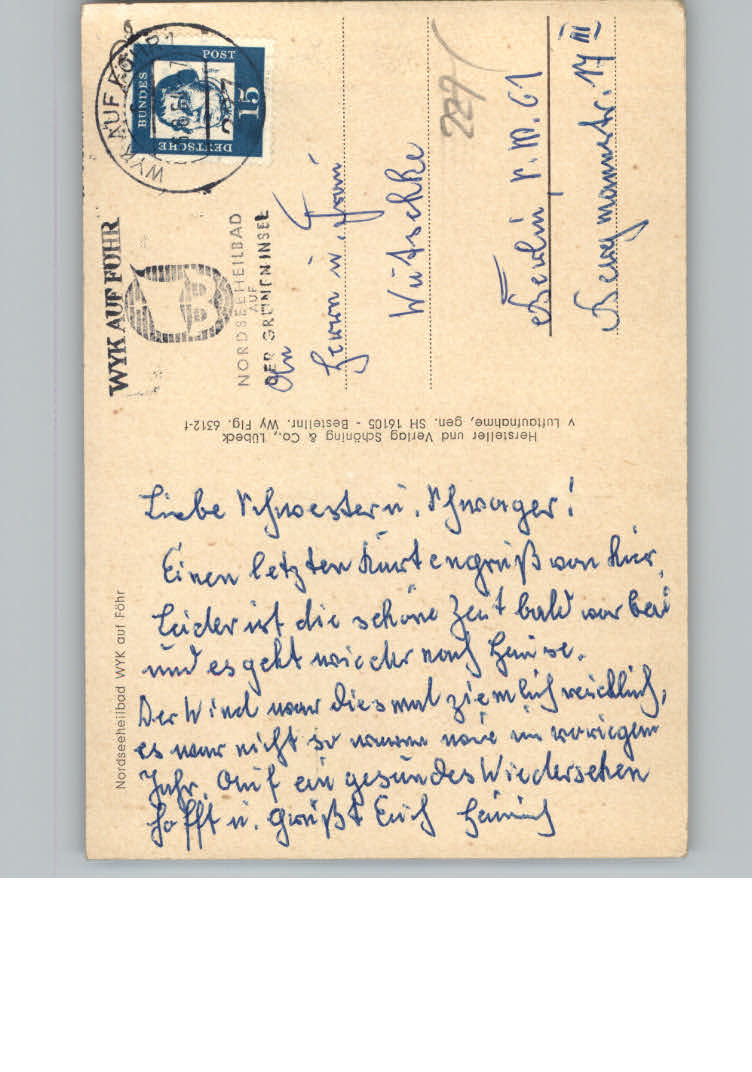 WYK AUF FÖHR
NORDSEEHEILBAD
AUF
DER GRÜNEN INSEL
WYK AUF FÖHR
DEUTSCHE
BUNDES
POST
15
229
An
Herrn u. Frau
Wutschke
Berlin, S.W. 61
Bergmannstr. 17 III
Hersteller und Verlag Schöning & Co., Lübeck
v Luftaufnahme, gen. SH 16105 - Bestellnr. Wy Flg. 6312-f
Nordseeheilbad WYK auf Föhr
Liebe Schwester u. Schwager!
Einen letzten Kartengruß von hier,
leider ist die schöne Zeit bald vor bei
und es geht wieder nach Hause.
Der Wind war diesmal ziemlich reichlich,
es war nicht so warm wie im vorigen
Jahr. Auf ein gesundes Wiedersehen
hofft u. grüßt Euch Heinrich